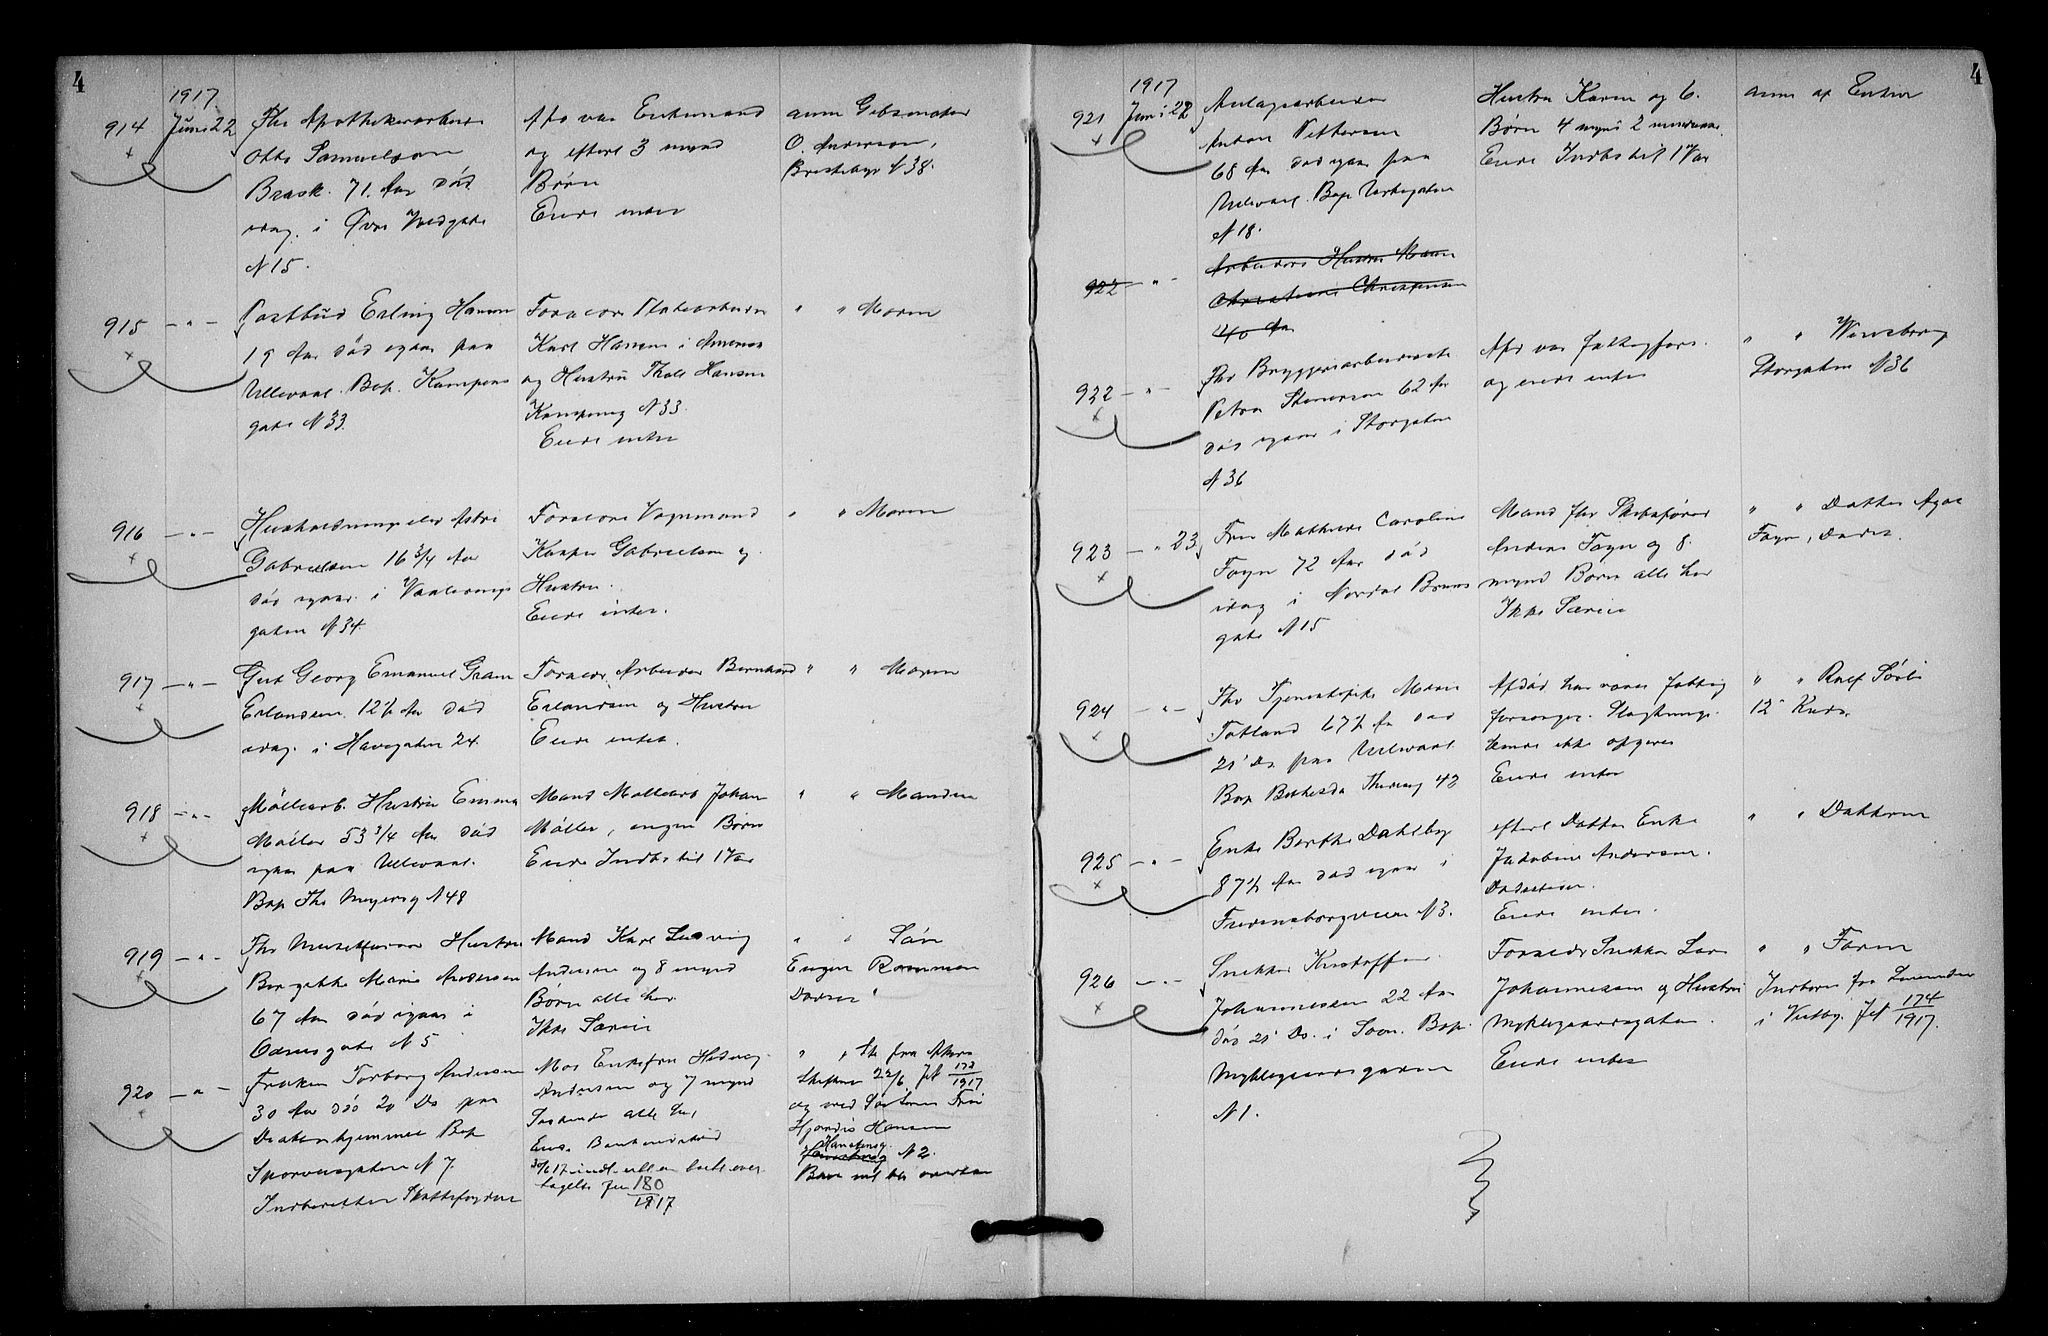 4
1917
914 Juni 22 Fhv Apothekerarbeider
Otto Samuelson
Brask. 71. Aar død
idag. i Øvre Voldgade
N 15.
Afd var Enkemand
og efterl 3 mynd
Børn
Eiede intet
anm Gibsmaker
O. Andersen,
N 38.
915 — " — Postbud Erling Hansen
19 Aar død igaar paa
Ullevaal. Bop. Kampens
gade N 33.
Forældre
Karl Hansen i Amerika
og Hustru Thali Hansen
Kampensg N 33.
Eiede intet
" " Moren
916 — " — Husholdningselev Astri
Gabrielsen 16 3/4 Aar
død igaar. i Vaalerengs
gaten N 34.
Forældre Vognmand
Kasper Gabrielsen og
Hustru.
Eiede intet.
" " Moren
917 — " — Gut Georg Emanuel Gram
Erlandsen. 12 1/2 Aar død
idag. i Havegaten 24.
Forældr. Arbeider Bernhard
Erlandsen og Hustru
Eiede intet.
" " Moren
918 — " — Møllearb. Hustru Emma
Møller 53 3/4 Aar død
igaar paa Ullevaal.
Bop Ths Meyersg N 48
Mand Møllearb Johan
Møller, ingen Børn
Eiede Indbo til 1 Var
" " Manden
919 — " — Fhv Hustru
Bergitte Marie Andersen
67 Aar død igaar i
Odensgade N 5
Mand Karl Ludvig
Andersen og 8 mynd
Børn alle her
Ikke Særeie
" " Søn
Einar
920 — " — Frøken Torborg Andersen
30 Aar død 20 Ds paa
Diakonhjemmet Bop
Sporveisgaten N 7.
Indberetter Skattefogden
Mor Enkefru Hedevig
Andersen og 7 mynd
Søskende alle her,
Eied. Bankindskud
30/6 17 indl.
tagelse Jnr 180
1917
" " Sk fra Akers
Skifteret 22/6 Jnr 173
1917
og ved Søsteren Fru
Hjørdis Hansen
Hansteensg. N 2
Boet vil bli overtat
4
1917
921 Juni 22 Anlægsarbeider
Anton Pettersen
68 Aar død igaar paa
Ullevaal. Bop
N 18.
Hustru Karen og 6.
Børn 4 mynd 2 umyndige
Eiede Indbo til 1 Var
anm af Enken
922 — " — Arbeiders Hustru Maren
Christiane Christensen
40 Aar
922 — " — Fhv Bryggeriarbeiderske
Petra Stenersen 62 Aar
død igaar i Storgaten
N 36
Afd var fattigfors.
og eiede intet
" "
Storgaten N 36
923 — " 23 Fru Mathilde Caroline
Foyn 72 Aar død
idag i Nordal Bruns
gate N 15
Mand fhv Skibsfører
Anders Foyn og 8.
mynd Børn alle her
Ikke Særeie
" " Datter
Foyn,
924 — " — Fhv Tjenestepike Maren
Totland 67 1/2 Aar død
21' Ds paa Ullevaal
Bop Bethesda 42
Afdød har været fattig
forsørget. Slægtninge
kunde ikke opgives
Eiede intet
" " Rolf Sørli
925 — " — Enke Berthe Dahlby
87 1/2 Aar død igaar i
Fredensborgveien N 3.
efterl Datter Enke
Jakobine Andersen.
Dødsstedet
Eiede intet.
" " Datteren
926 — " — Snekker Kristoffer
Johannessen 22 Aar
død 21' Ds. i Bop.
Myklegaardsgaten
N 1.
Forældr Snekker Lars
Johannessen og Hustru
Myklegaardsgaten.
Eiede intet
" " Faren
Indbern fra
i Vestby. Jnr 174
1917.